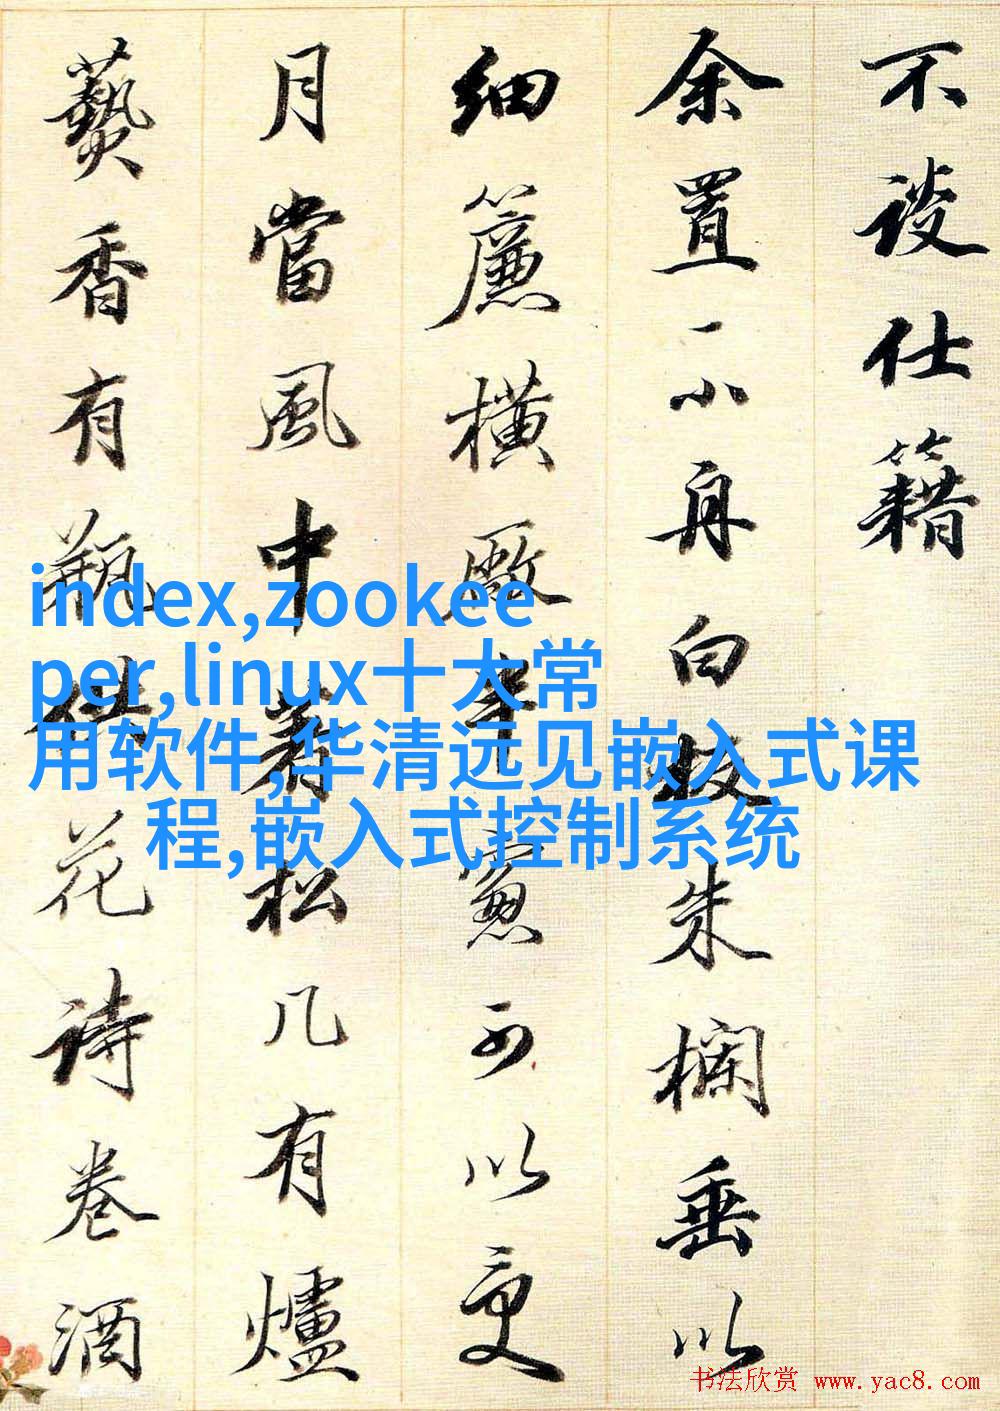 不談仕籍
余置一小舟白板朱欄垂以
細簾橫廠半窻可以更
月當風中著松几有爐
爇香有瓶供花詩卷酒
index,zookee
per,linux十大常
用软件,华清远见嵌入式课
程,嵌入式控制系统
书法欣赏 www.yac8.com